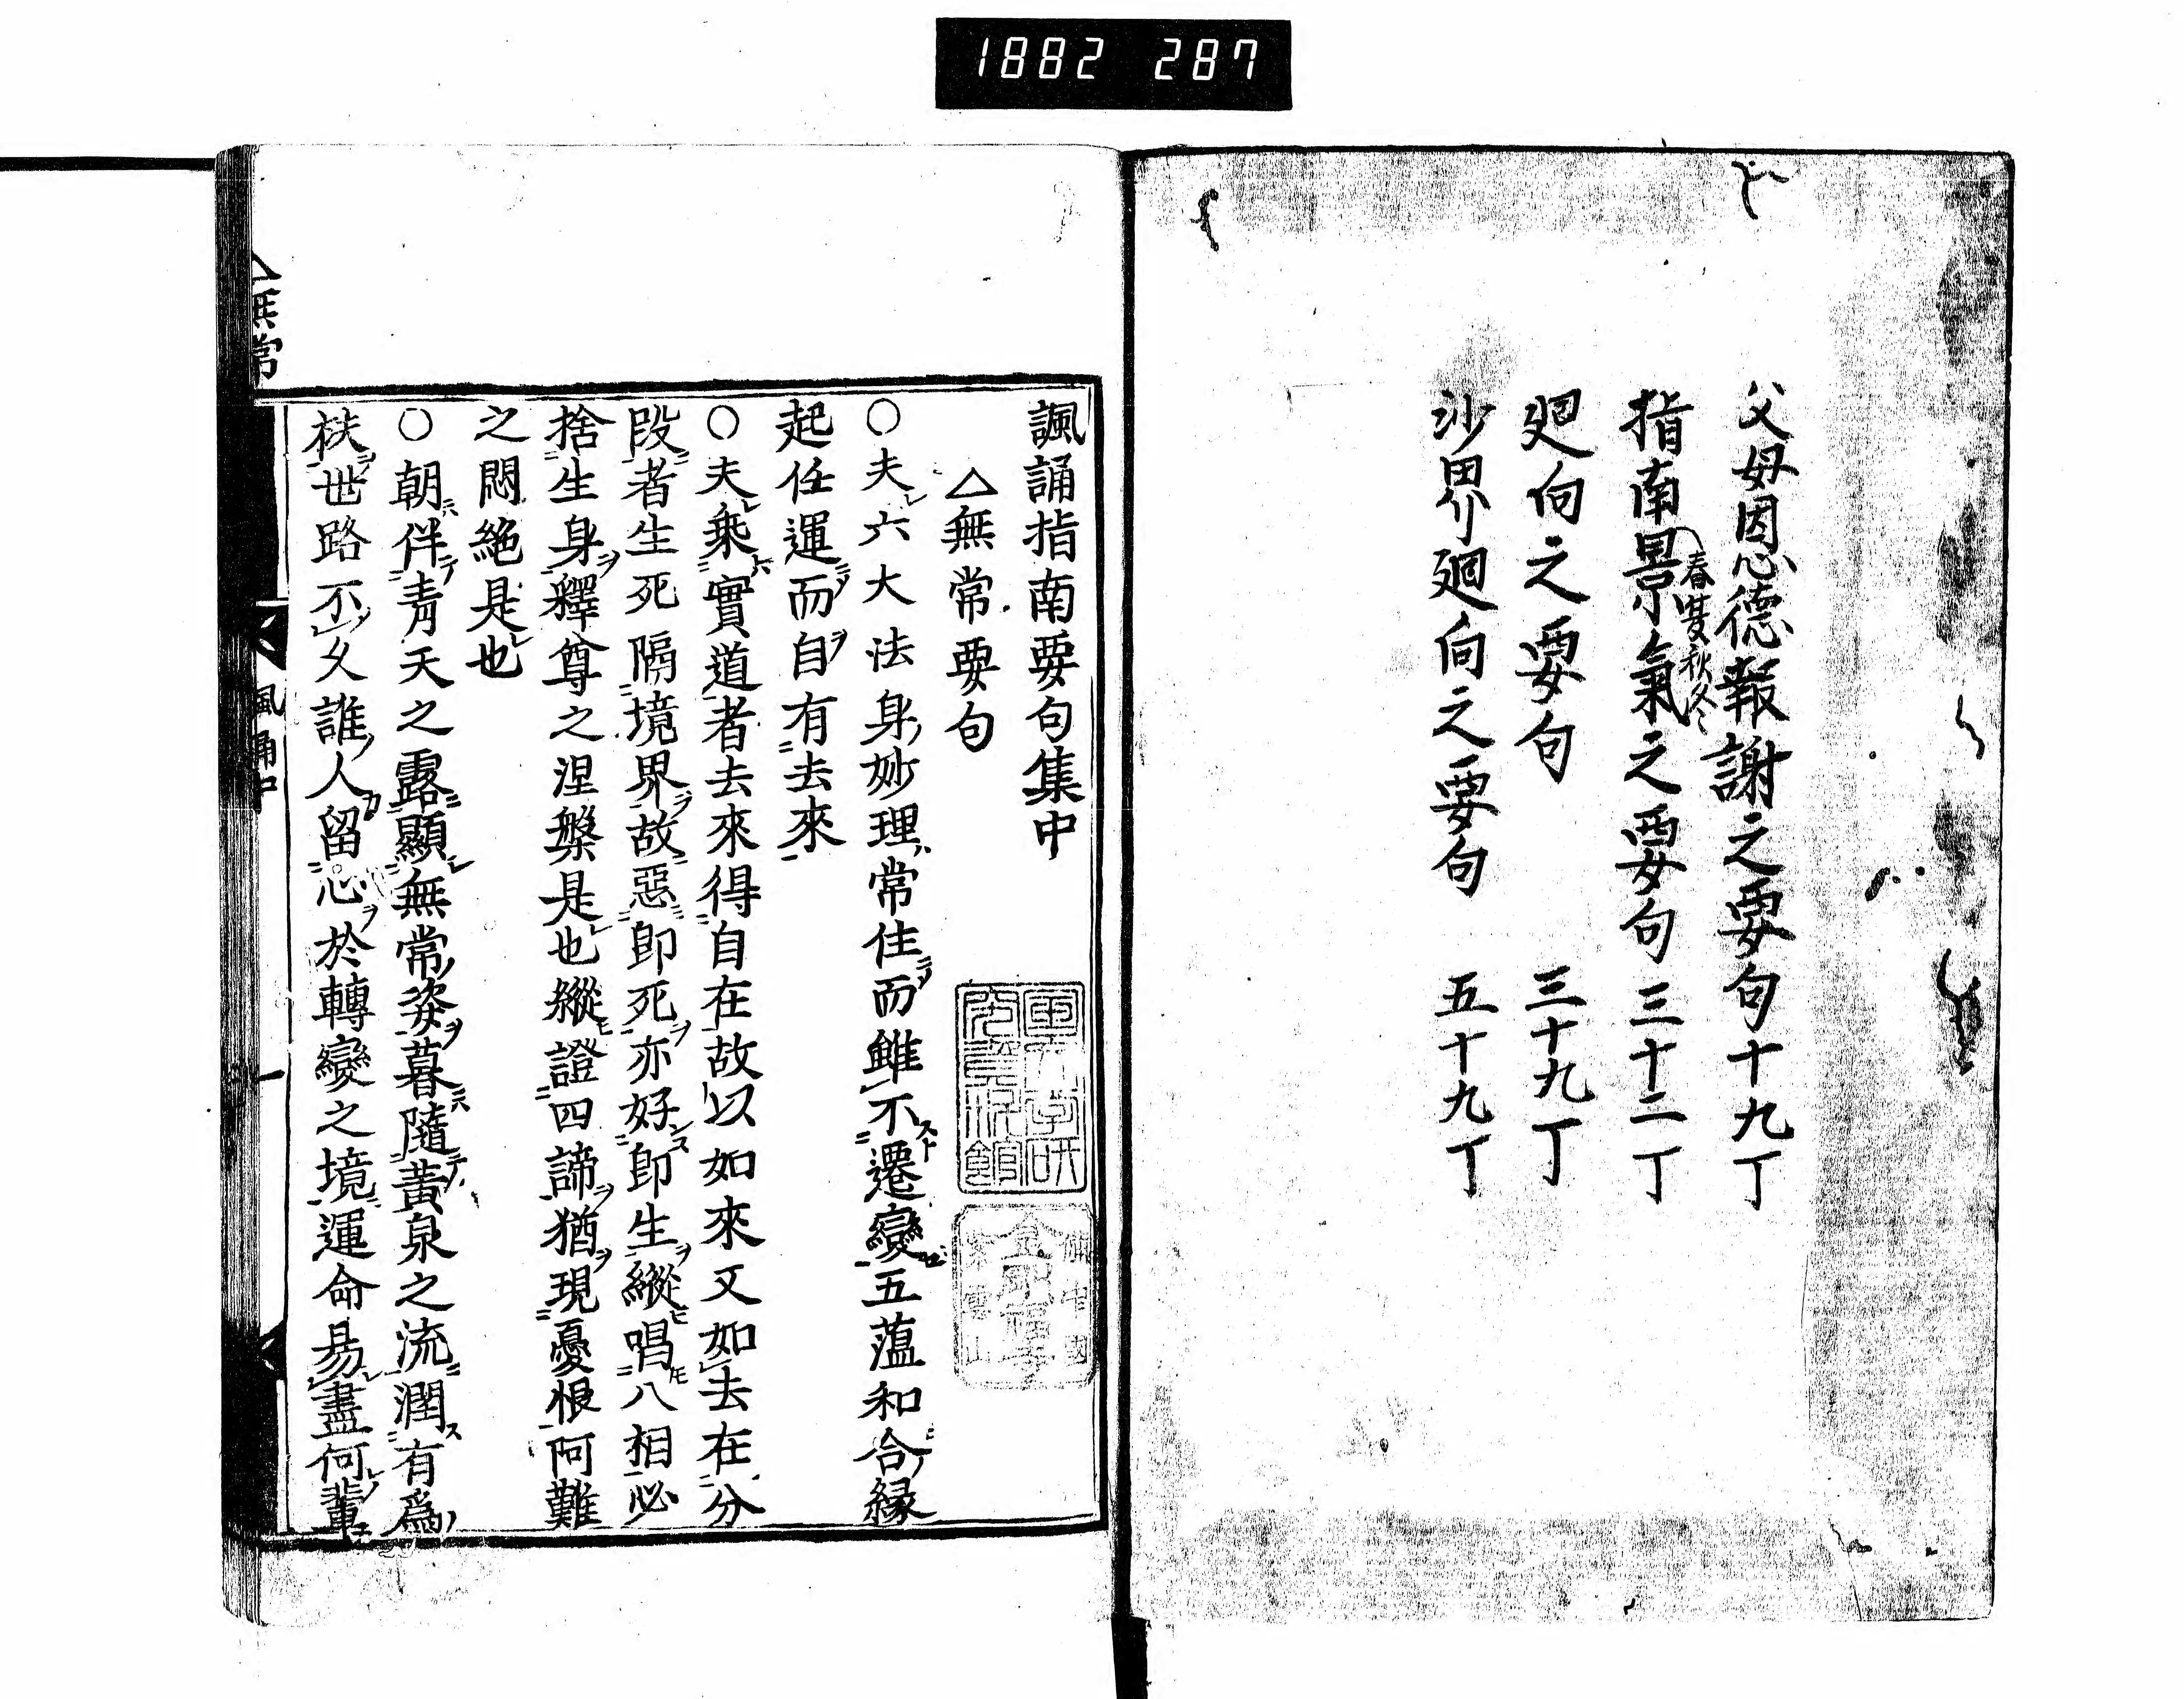 1882 287
父母因心德報謝之要句十九丁
指南景氣之要句三十二丁
春夏秋冬
廻向之要句 三十九丁
沙界廻向之要句 五十九丁
諷誦指南要句集中
△無常要句
○夫六大法身妙理常住而雖不遷變五薀和合縁
起任運而自有去來
○夫乗實道者去來得自在故以如來又如去在分
段者生死隔境界故惡即死亦好即生縱唱八相必
捨生身釋尊之涅槃是也縱證四諦猶現憂恨阿難
之悶絶是也
○朝伴青天之露顯無常姿暮隨黃泉之流潤有爲
袂世路不久誰人留心於轉變之境運命易盡何輩
△無常